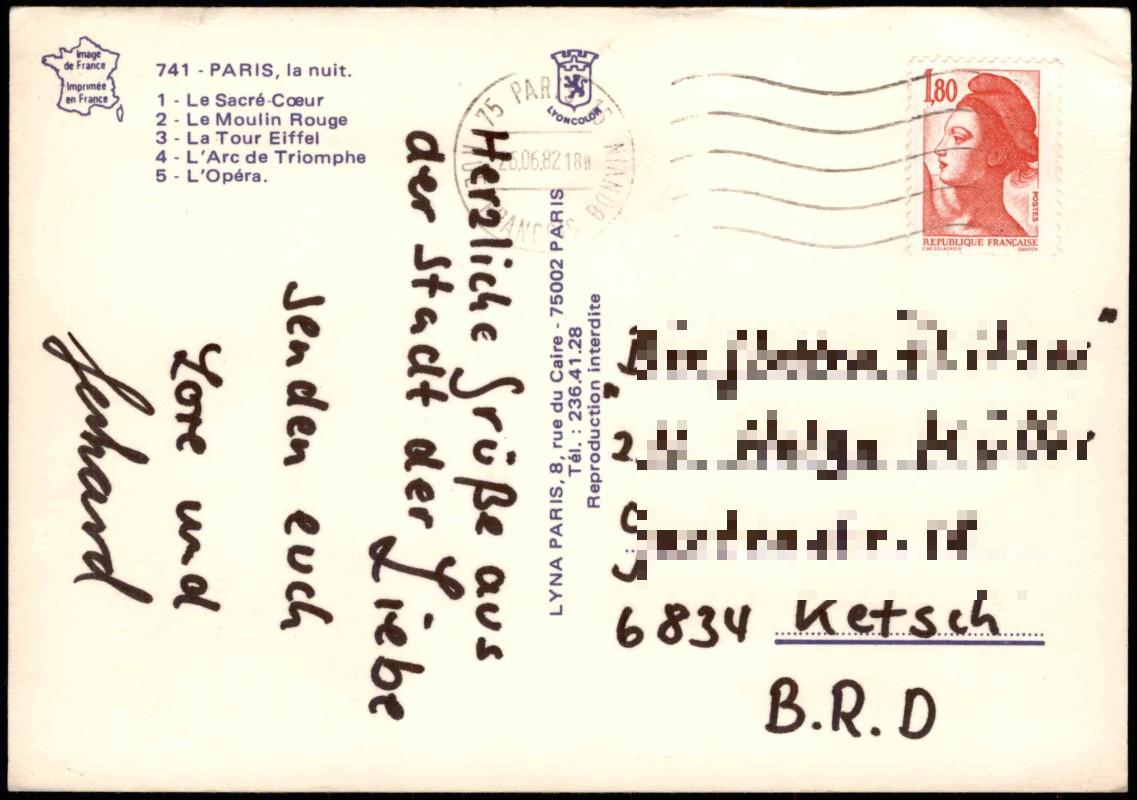 Image
de France
Imprimée
en France
741 - PARIS, la nuit.
1 - Le Sacré-Cœur
2 - Le Moulin Rouge
3 - La Tour Eiffel
4 - L'Arc de Triomphe
5 - L'Opéra.
LYONCOLOR
75 PARIS 15
26.06.82 18H
BONVIN
1,80
POSTES
REPUBLIQUE FRANÇAISE
Herzliche Grüße aus
der Stadt der Liebe
senden euch
Lore und
Gerhard
LYNA PARIS, 8, rue du Caire - 75002 PARIS
Tél. : 236.41.28
Reproduction interdite
6834 Ketsch
B.R.D